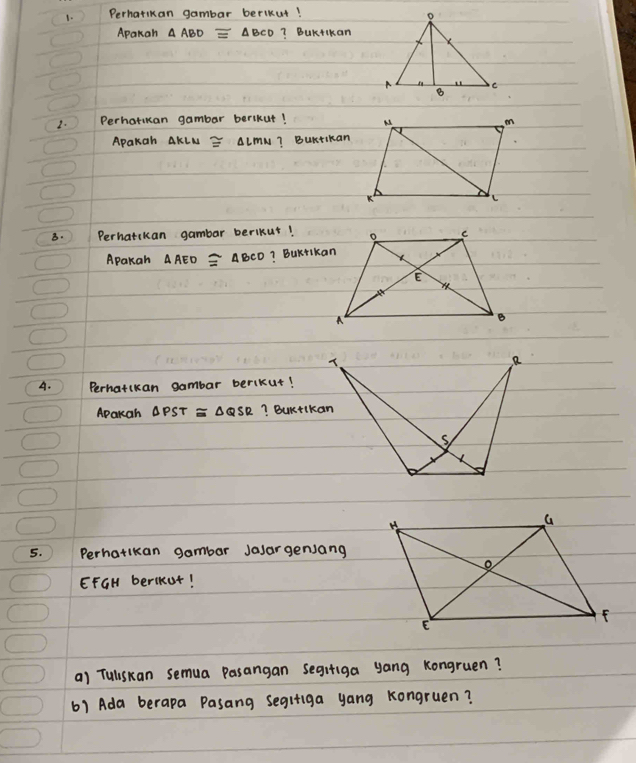 1. Perhatikan gambar berikut !
Apakah Δ ABD ≅ Δ BCD ? Buktikan
D
A B C
2. Perhatikan gambar berikut !
Apakah ΔKLN ≅ ΔLMN ? Buktikan
N M
K L
3. Perhatikan gambar berikut !
Apakah Δ AED ≅ Δ BCD ? Buktikan
D C
E
A B
4. Perhatikan gambar berikut !
Apakah ΔPST ≅ ΔQSR ? Buktikan
T R
S
5. Perhatikan gambar Jajargenjang
EFGH berikut !
H G
O
E F
a) Tuliskan semua pasangan segitiga yang kongruen ?
b) Ada berapa Pasang segitiga yang kongruen ?